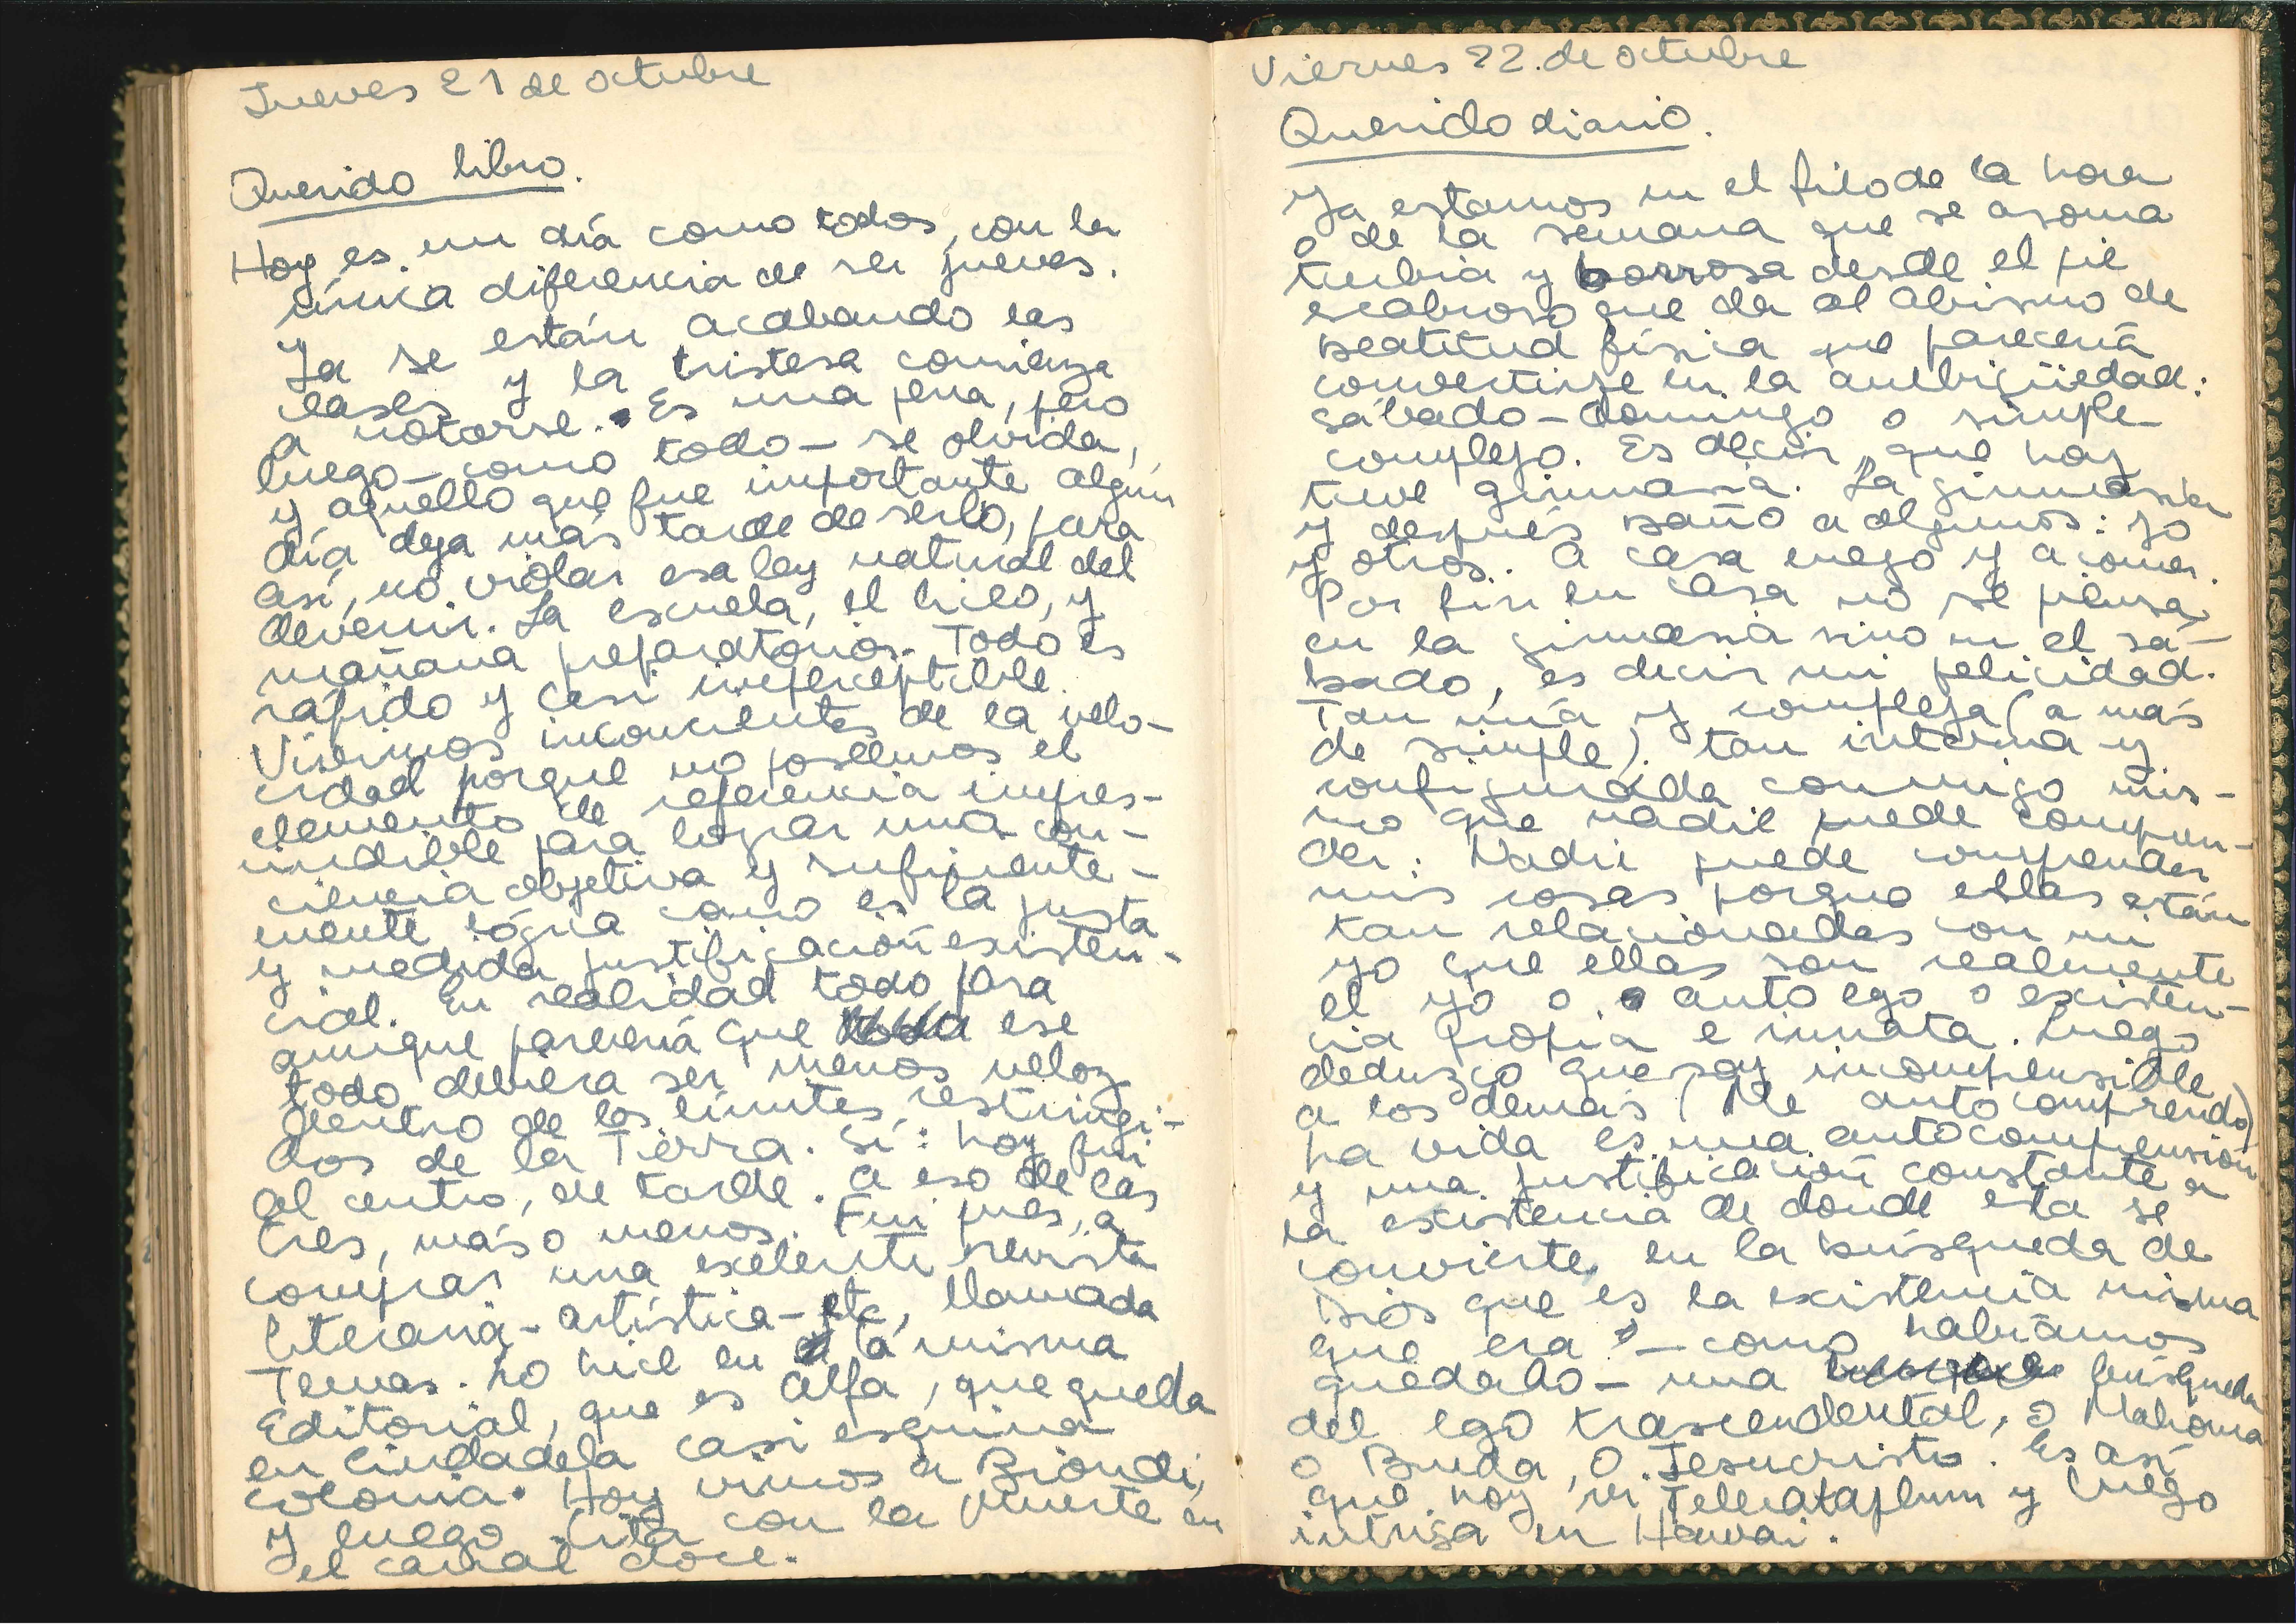 Jueves 21 de octubre
Querido libro.
Hoy es un día como todos, con la
única diferencia de ser jueves.
Ya se están acabando las
clases y la tristesa comienza
a notarse. Es una pena, pero
luego – como todo – se olvida,
y aquello que fue importante algún
día deja más tarde de serlo, para
así, no violar esa ley natural del
devenir. La escuela, el liceo, y
mañana preparatorios. Todo es
rápido y casi imperceptible.
Vivimos inconcientes de la velo-
cidad porque no poseemos el
elemento de referencia impres-
indible para lograr una con-
ciencia objetiva y suficiente-
mente lógica como es la justa
y medida justificación existen-
cial. En realidad todo pasa
aunque parecería que ese
todo debiera ser menos veloz
dentro de los límites restringi-
dos de la Tierra. Sí: hoy fui
al centro, de tarde. A eso de las
tres, más o menos. Fui pues, a
comprar una exelente revista
literaria - artística - etc, llamada
Temas. Lo hice en la misma
Editorial, que es Alfa, que queda
en Ciudadela casi esquina
colonia. Hoy vimos a Biondi,
y luego Cita con la Muerte en
el canal doce.
Viernes 22 de octubre
Querido diario.
Ya estamos en el filo de la hora
o de la semana que se asoma
turbia y borrosa desde el pie
escabroso que da al abismo de
beatitud física que parecería
convertirse en la ambigüedad:
sábado - domingo o simple
complejo. Es decir, que hoy
tuve gimnasia. La gimnasia
y después baño a algunos: yo
y otros. A casa luego y a comer.
Por fin en casa no se piensa
en la gimnasia sino en el sá-
bado, es decir mi felicidad.
Tan mía y compleja (a más
de simple). tan interna y
configurada conmigo mis-
mo que nadie puede compren-
der: Nadie puede comprender
mis cosas porque ellas están
tan relacionadas con mi
yo que ellas son realmente
el yo o auto ego o existen-
cia propia e innata. Luego
deduzco que soy incomprensible
a los demás (Me auto comprendo)
La vida es una autocomprensión
y una justificación constante a
la existencia de donde esta se
convierte en la búsqueda de
Dios que es la existencia misma
que era – como habíamos
quedado – una búsqueda
del ego trascendental, o Mahoma
o Buda, o Jesucristo. Es así
que hoy ví Telecataplum y luego
intriga en Hawai.